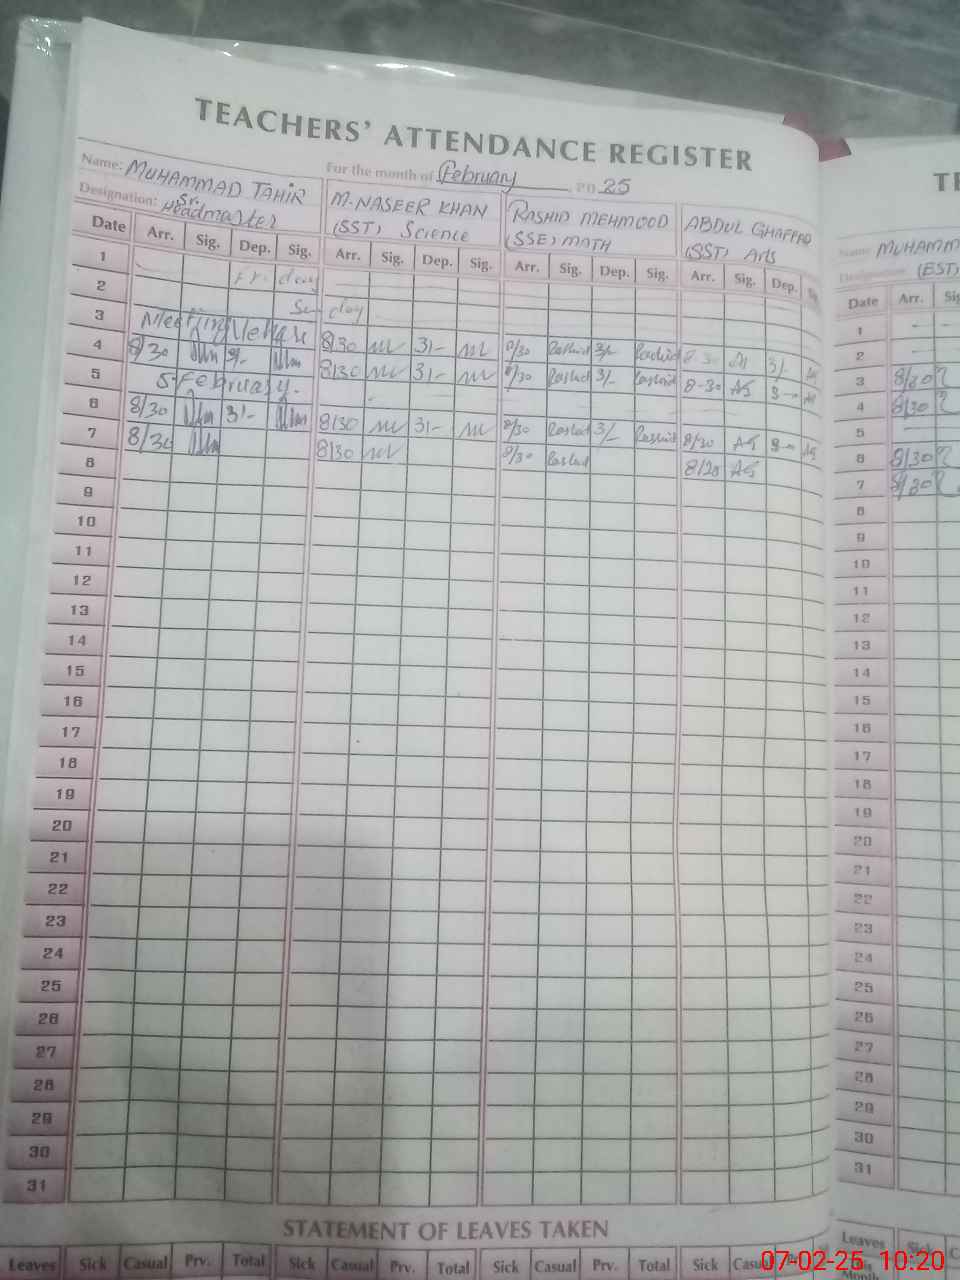 TEACHERS' ATTENDANCE REGISTER
For the month of February 20 25
Name: MUHAMMAD TAHIR M.NASEER KHAN RASHID MEHMOOD ABDUL GHAFFAR
Designation: Sr. Headmaster (SST) Science (SSE) MATH (SST) Arts
Date Arr. Sig. Dep. Sig. Arr. Sig. Dep. Sig. Arr. Sig. Dep. Sig. Arr. Sig. Dep.
1
2 day
3 Meeting 8/30 3/- 8/30 Rashid 3/- Rashid 8-30 3/-
4 8/30 8/30 3/- 8/30 Rashid 3/- Rashid 8-30 AG
5 5 February.
6 8/30 3/- 8/30 3/- 8/30 Rashid 3/- Rashid 8/30 AG
7 8/30 8/30 8/30 Rashid 8/28 AG
8
9
10
11
12
13
14
15
16
17
18
19
20
21
22
23
24
25
26
27
28
29
30
31
STATEMENT OF LEAVES TAKEN
Leaves Sick Casual Prv. Total Sick Casual Prv. Total Sick Casual Prv. Total Sick Casual
TE
Name: MUHAMM
Designation: (EST)
Date Arr. Sig
1
2
3 8/30
4 8/30
5
6 8/30
7 8/30
8
9
10
11
12
13
14
15
16
17
18
19
20
21
22
23
24
25
26
27
28
29
30
31
Leaves Sick C
Month
07-02-25 10:20